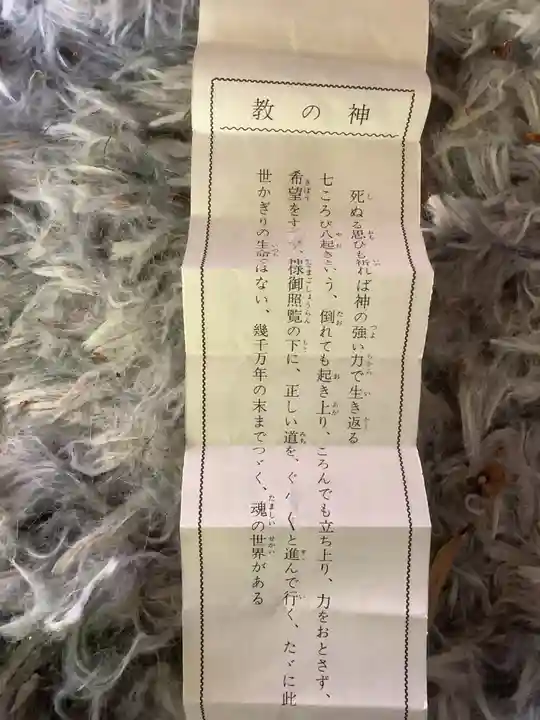 神の教
死ぬる思ひも祈れば神の強い力で生き返る
七ころび八起きいう、倒れても起き上り、ころんでも立ち上り、力をおとさず、
希望をす、様御照覧の下に、正しい道を、ぐん〳〵と進んで行く、たゞに此
世かぎりの生命ではない、幾千万年の末までつゞく、魂の世界がある